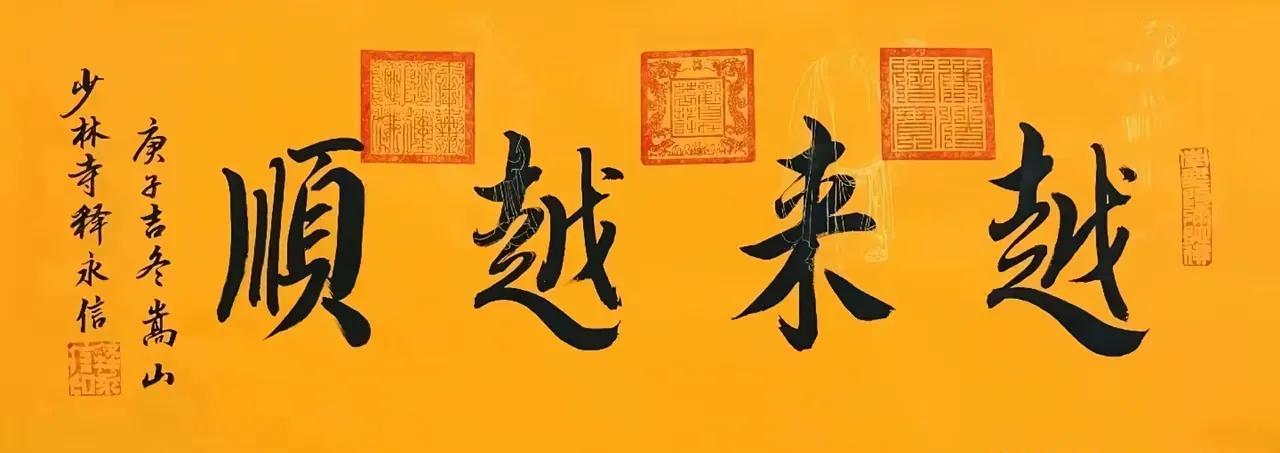 越来越順
庚子吉冬嵩山
少林寺释永信